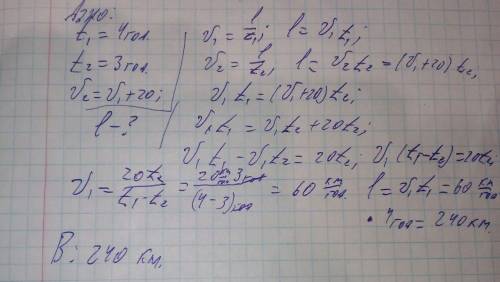 Дано:
t₁ = 4 год.
t₂ = 3 год.
V₂ = V₁ + 20;
l - ?
V₁ = l/t₁; l = V₁t₁;
V₂ = l/t₂; l = V₂t₂ = (V₁+20)t₂;
V₁t₁ = (V₁+20)t₂;
V₁t₁ = V₁t₂ + 20t₂;
V₁t₁ - V₁t₂ = 20t₂; V₁(t₁-t₂) = 20t₂
V₁ = 20t₂/(t₁-t₂) = 20 км/год · 3 год/(4-3) год = 60 км/год l = V₁t₁ = 60 км/год
· 4 год = 240 км.
В: 240 км.